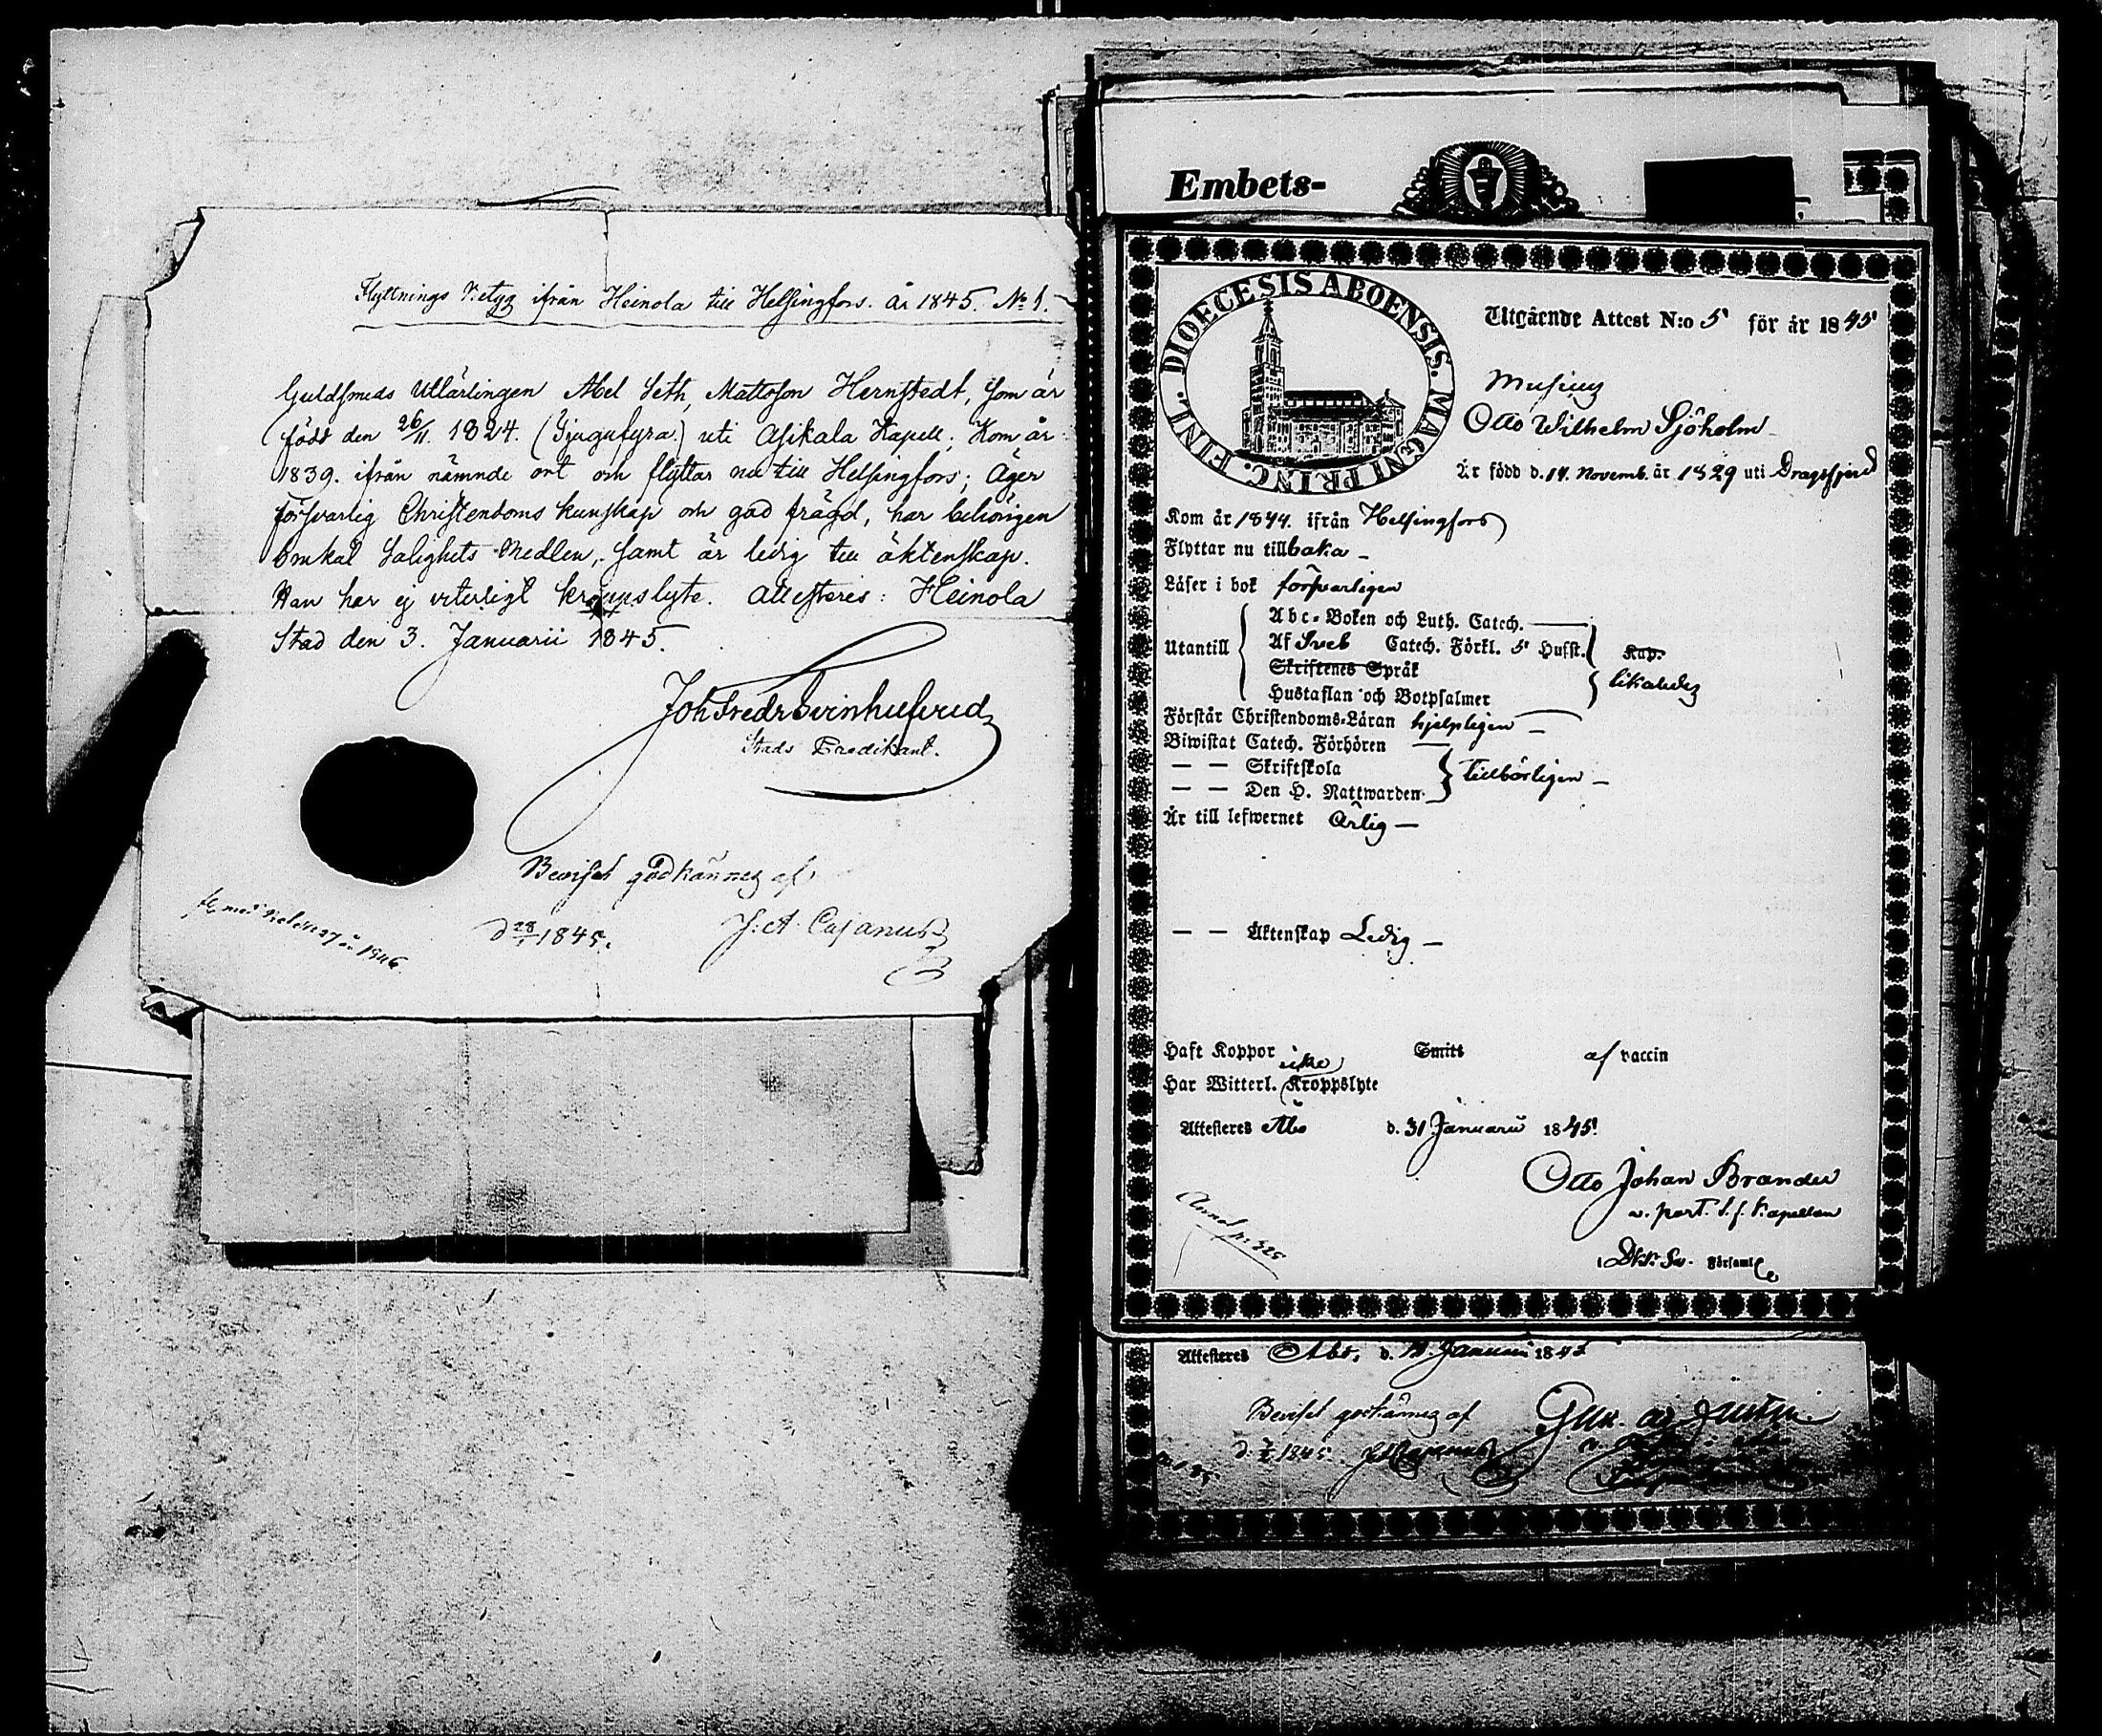 Flyttnings Betyg ifrån Heinola till Helsingfors. år 1845. No 1.
Guldsmeds Utlärlingen Abel Seth, Mattsson Hernstedt, som är
född den 26/11. 1824. (Tjugufyra) uti Asikala Kapell; Kom år
1839. ifrån nämnde ort och flyttar nu till Helsingfors; Äger
försvarlig Christendoms kunskap och god frägd, har behörigen
omkat Salighets Medlen, samt är ledig till äktenskap.
Han har ej veterligt kroppslyte. Attesteras: Heinola
Stad den 3. Januarii 1845.
Joh Fredr Svinhufvud
Stads Predikant.
Beviset godkännes af
d 28/1 1845. J: A Cajanus
1846.
Embets-
DIOECESIS ABOENSIS. MAGNI PRINC. FINL.
Utgående Attest N:o 5 för år 1845
Otto Wilhelm Sjöholm
Är född d. 14 Novemb. år 1829 uti Dragsfjerd
Kom år 1844. ifrån Helsingfors
Flyttar nu tillbaka
Läser i bok försvarligen
Utantill
Abc-Boken och Luth. Catech.
Af Sveb Catech. Förkl. 5 Husst. Kap.
Skriftenes Språk
Hustaflan och Botpsalmer
likaledes
Förstår Christendoms-Läran hjelpligen
Biwistat Catech. Förhören
— — Skriftskola
— — Den H. Nattwarden
tillbörligen
Är till lefwernet Ärlig
— — Äktenskap Ledig
Haft Koppor Smitt af vaccin
Har Witterl. icke Kroppslyte
Attesteres Åbo d. 31 Januarii 1845
Otto Johan Brander
v. past. Kapellan
i Församl
Attesteres Åbo, d. Januarii 184
Beviset godkännes af
d. 1845.